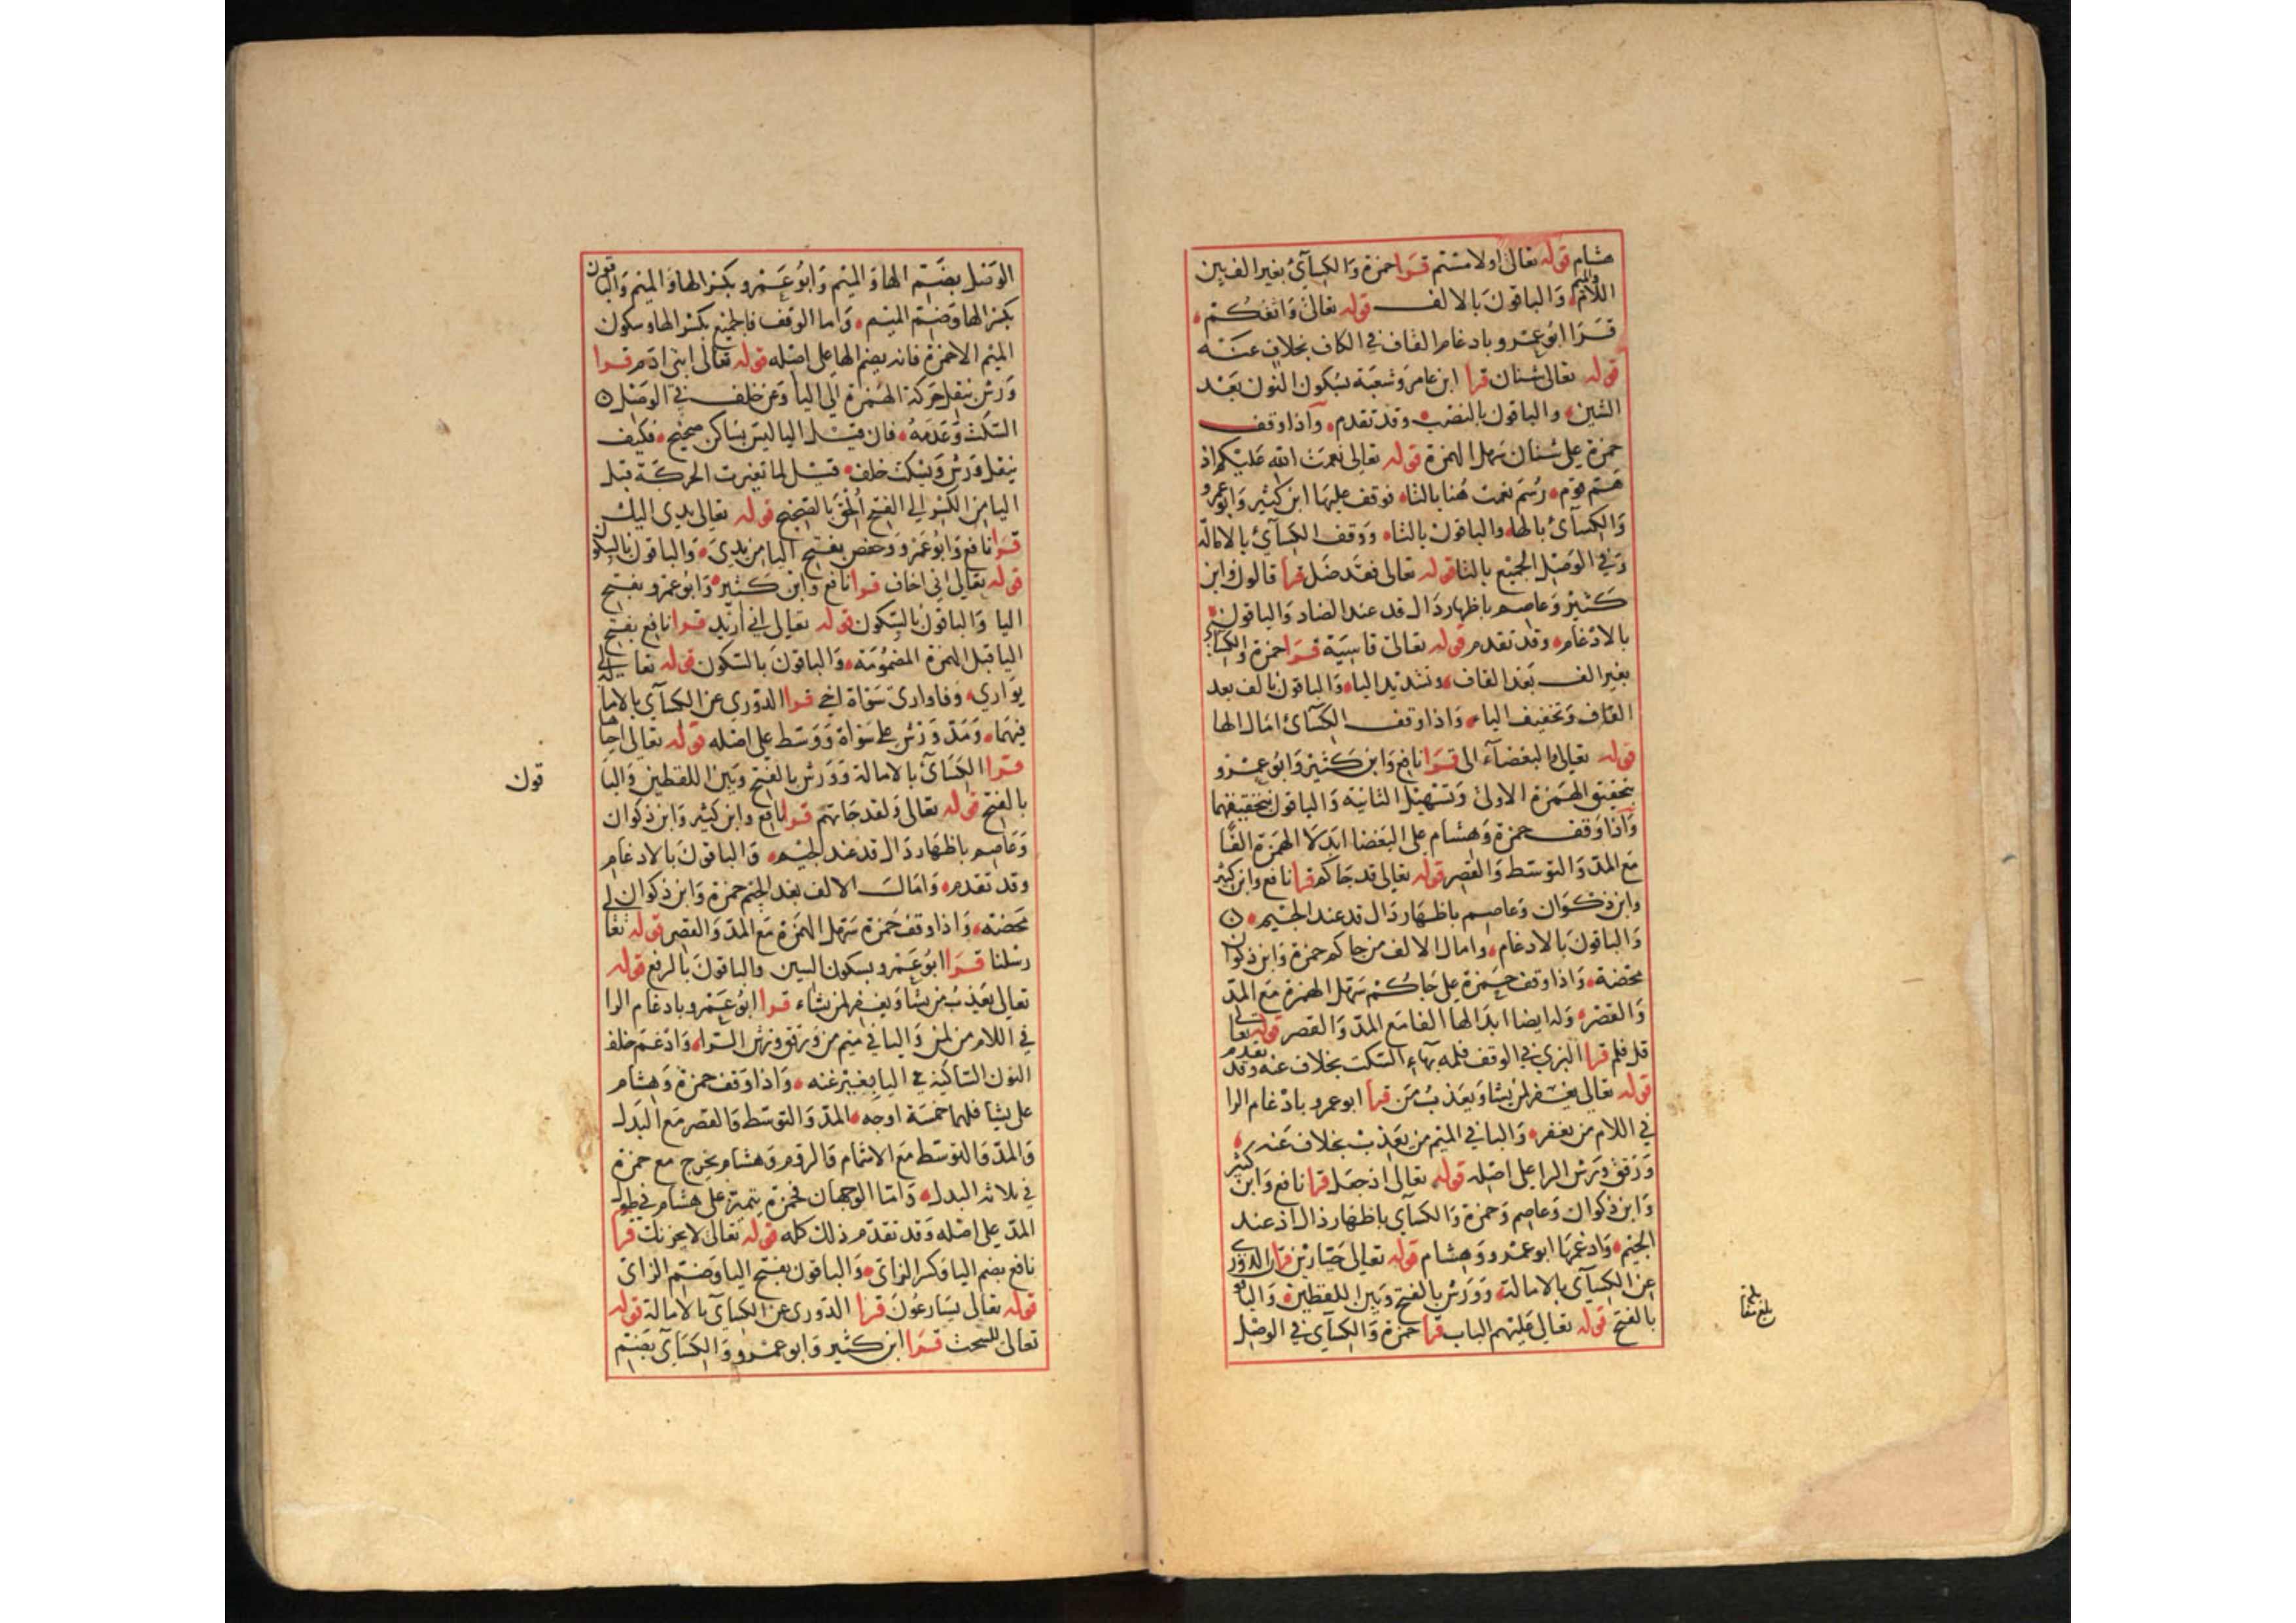 هشام قوله تعالى اولامستم قرا حمزة والكسآئ بغير الف بين
اللام والميم والباقون بالالف قوله تعالى واثقكم
قرا ابو عمرو بادغام القاف في الكاف بخلاف عنه
قوله تعالى شنان قرا ابن عامر وشعبة بسكون النون بعد
الشين والباقون بالنصب وقد تقدم واذا وقف
حمزة على شنان سهل الهمزة قوله تعالى نعمت الله عليكم اذ
هم قوم رسم نعمت هنا بالتاء فوقف عليها ابن كثير وابو عمرو
والكسآئ بالهاء والباقون بالتاء ووقف الكسآئ بالامالة
وفي الوصل الجميع بالتا قوله تعالى فقد ضل قرا قالون وابن
كثير وعاصم باظهار دال قد عند الضاد والباقون
بالادغام وقد تقدم قوله تعالى قاسية قرا حمزة والكسآئ
بغير الف بعد القاف وتشديد الياء والباقون بالف بعد
القاف وتخفيف الياء واذا وقف الكسآئ امال الها
قوله تعالى والبغضآء الى قرا نافع وابن كثير وابو عمرو
بتحقيق الهمزة الاولى وتسهيل الثانية والباقون بتحقيقهما
واذا وقف حمزة وهشام على البغضا ابدلا الهمزة الفا
مع المد والتوسط والقصر قوله تعالى قد جاكم قرا نافع وابن كثير
وابن ذكوان وعاصم باظهار دال قد عند الجيم
والباقون بالادغام وامال الالف من جاكم حمزة وابن ذكوان
محضة واذا وقف حمزة على جاكم سهل الهمزة مع المد
والقصر وله ايضا ابدالها الفا مع المد والقصر قوله تعالى
قل فلم قرا البزي في الوقف فلمه بهاء السكت بخلاف عنه وقد تقدم
قوله تعالى يغفر لمن يشا ويعذب من قرا ابو عمرو بادغام الرا
في اللام من يغفر والبا في الميم من يعذب بخلاف عنه
ورقق ورش الرا على اصله قوله تعالى اذ جعل قرا نافع وابن كثير
وابن ذكوان وعاصم وحمزة والكسآي باظهار ذال اذ عند
الجيم وادغمها ابو عمرو وهشام قوله تعالى جبارين قرا الدوري
عن الكسآي بالامالة وورش بالفتح وبين اللفظين والباقو
بالفتح قوله تعالى عليهم الباب قرا حمزة والكسآي في الوصل
الوصل بضم الها والميم وابو عمرو بكسر الها والميم والباقون
بكسر الها وضم الميم واما الوقف فالجميع بكسر الها وسكون
الميم الا حمزة فانه يضم الها على اصله قوله تعالى ابني ادم قرا
ورش بنقل حركة الهمزة الى اليا وعن خلف في الوصل
السكت وعدمه فان قيل اليا ليس بساكن صحيح فكيف
ينقل ورش ويسكت خلف قيل لما تغيرت الحركة قبل
اليا من الكسر الى الفتح الحق بالصحيح قوله تعالى يدي اليك
قرا نافع وابو عمرو وحفص بفتح اليا من يدي والباقون بالسكون
قوله تعالى اني اخاف قرا نافع وابن كثير وابو عمرو بفتح
اليا والباقون بالسكون قوله تعالى اني اريد قرا نافع بفتح
اليا قبل الهمزة المضمومة والباقون بالسكون قوله تعالى
يواري وفاواري سواة اخي قرا الدوري عن الكسآي بالامالة
فيهما ومد ورش على سواة ووسط على اصله قوله تعالى احياها
قرا الكسآئ بالامالة وورش بالفتح وبين اللفظين والبا
قون
بالفتح قوله تعالى ولقد جاتهم قرا نافع وابن كثير وابن ذكوان
وعاصم باظهار دال قد عند الجيم والباقون بالادغام
وقد تقدم وامال الالف بعد الجيم حمزة وابن ذكوان
محضة واذا وقف حمزة سهل الهمزة مع المد والقصر قوله تعالى
رسلنا قرا ابو عمرو بسكون السين والباقون بالرفع قوله
تعالى يعذب من يشا ويغفر لمن يشاء قرا ابو عمرو بادغام الرا
في اللام من لمن والبا في ميم من ورقق ورش الرا وادغم خلف
النون الساكنة في اليا بغير غنه واذا وقف حمزة وهشام
على يشا فلهما خمسة اوجه المد والتوسط والقصر مع البدل
والمد والتوسط مع الاشمام والروم وهشام يخرج مع حمزة
في ثلاثه البدل واما الوجهان فحمزة يتميز على هشام في طول
المد على اصله وقد تقدم ذلك كله قوله تعالى لا يحزنك قرا
نافع بضم اليا وكسر الزاي والباقون بفتح اليا وضم الزاي
قوله تعالى يسارعون قرا الدوري عن الكسآي بالامالة قوله
تعالى للسحت قرا ابن كثير وابو عمرو والكسآي بضم